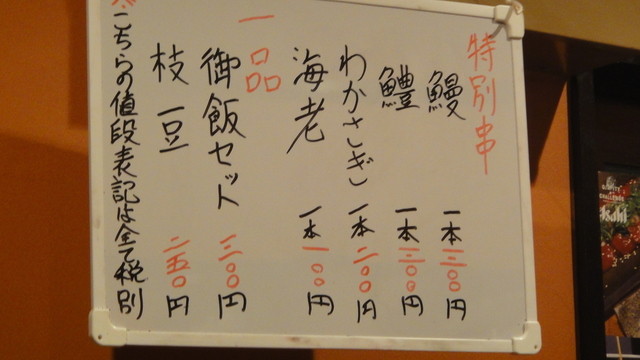 特別串
鰻 一本 三〇〇円
鱧 一本 三〇〇円
わかさぎ 一本 二〇〇円
海老 一本 一〇〇円
一品
御飯セット 三〇〇円
枝豆 二五〇円
※こちらの値段表記は全て税別
Asahi